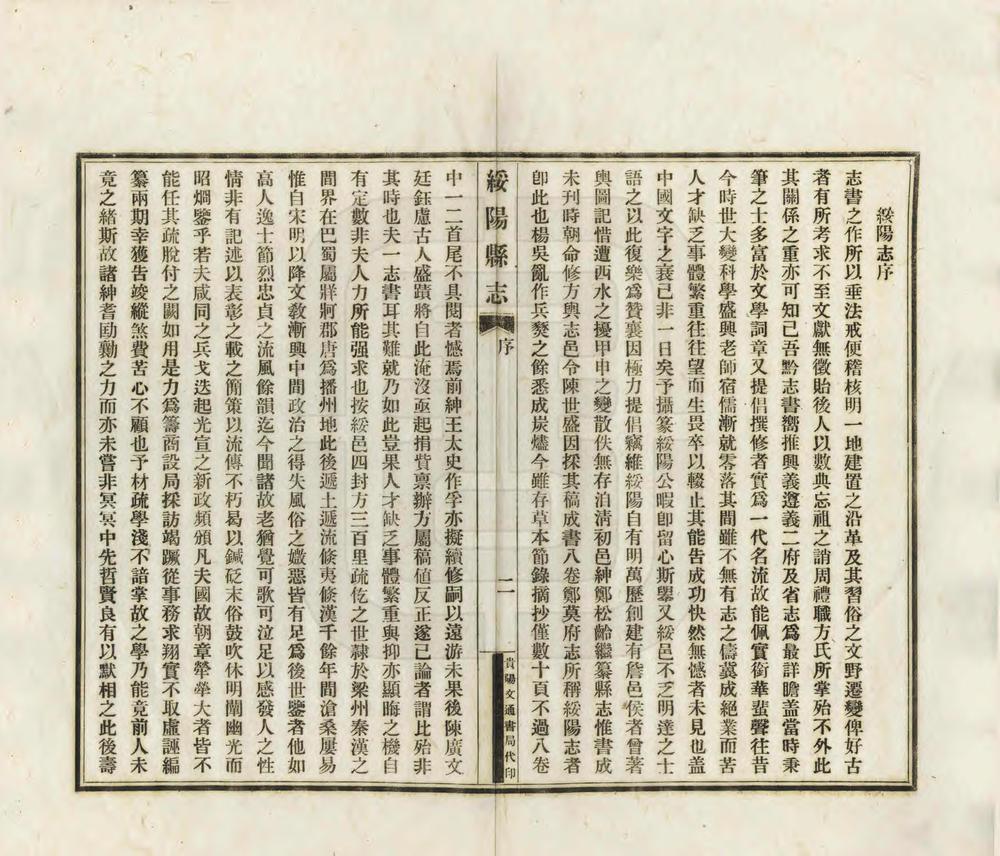 綏陽志序
志書之作所以垂法戒便稽核明一地建置之沿革及其習俗之文野遷變俾好古
者有所考求不至文獻無徵貽後人以數典忘祖之誚周禮職方氏所掌殆不外此
其關係之重亦可知己吾黔志書嚮推興義遵義二府及省志爲最詳瞻盖當時秉
筆之士多富於文學詞章又提倡撰修者實爲一代名流故能佩實銜華蜚聲往昔
今時世大變科學盛興老師宿儒漸就零落其間雖不無有志之儔冀成絕業而苦
人才缺乏事體繁重往往望而生畏卒以輟止其能告成功快然無憾者未見也盖
中國文字之衰已非一日矣予攝篆綏陽公暇卽留心斯舉又綏邑不乏明達之士
語之以此復樂爲贊襄因極力提倡竊維綏陽自有明萬歷創建有詹邑侯者曾著
輿圖記惜遭西水之擾甲申之變散佚無存洎淸初邑紳鄭松齡繼纂縣志惟書成
未刊時朝命修方輿志邑令陳世盛因採其稿成書八卷鄭莫府志所稱綏陽志者
卽此也楊吳亂作兵燹之餘悉成炭燼今雖存草本節錄摘抄僅數十頁不過八卷
綏陽縣志
序
二一
貴陽文通書局代印
中一二首尾不具閱者憾焉前紳王太史作孚亦擬續修嗣以遠游未果後陳廣文
廷鈺慮古人盛蹟將自此淹沒亟起捐貲禀辦方屬稿値反正遂已論者謂此殆非
其時也夫一志書耳其難就乃如此豈果人才缺乏事體繁重與抑亦顯晦之機自
有定數非夫人力所能强求也按綏邑四封方三百里疏佗之世隸於梁州秦漢之
間界在巴蜀屬牂牁郡唐爲播州地此後遞土遞流倐夷倐漢千餘年間滄桑屢易
惟自宋明以降文敎漸興中間政治之得失風俗之媺惡皆有足爲後世鑒者他如
高人逸士節烈忠貞之流風餘韻迄今聞諸故老猶覺可歌可泣足以感發人之性
情非有記述以表彰之載之簡策以流傳不朽曷以鍼砭末俗鼓吹休明闡幽光而
昭烱鑒乎若夫咸同之兵戈迭起光宣之新政頻頒凡夫國故朝章犖犖大者皆不
能任其疏脫付之闕如用是力爲籌商設局採訪竭蹶從事務求翔實不取虛誣編
纂兩期幸獲告竣縱煞費苦心不顧也予材疏學淺不諳掌故之學乃能竟前人未
竟之緒斯故諸紳耆勖勷之力而亦未嘗非冥冥中先哲賢良有以默相之此後壽